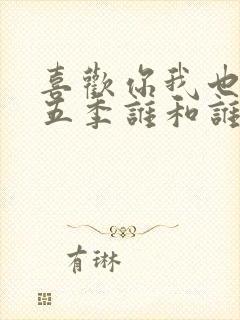 喜歡你我也
五季誰和誰
有琳